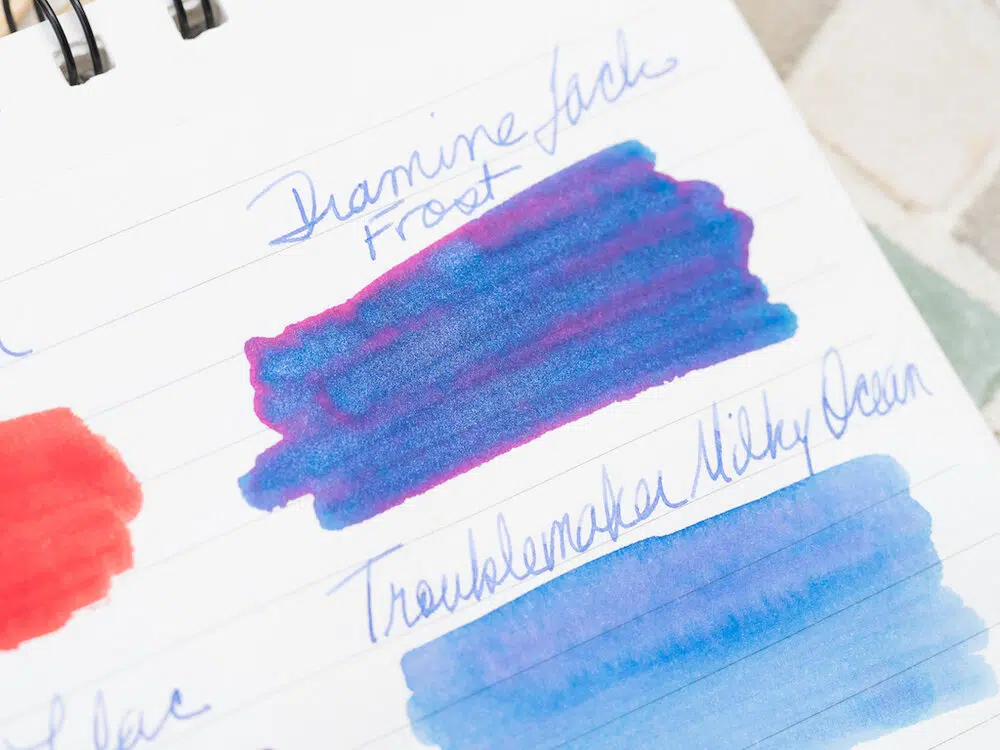 Diamine Jack
Frost
Troublemaker Milky Ocean
Lilac